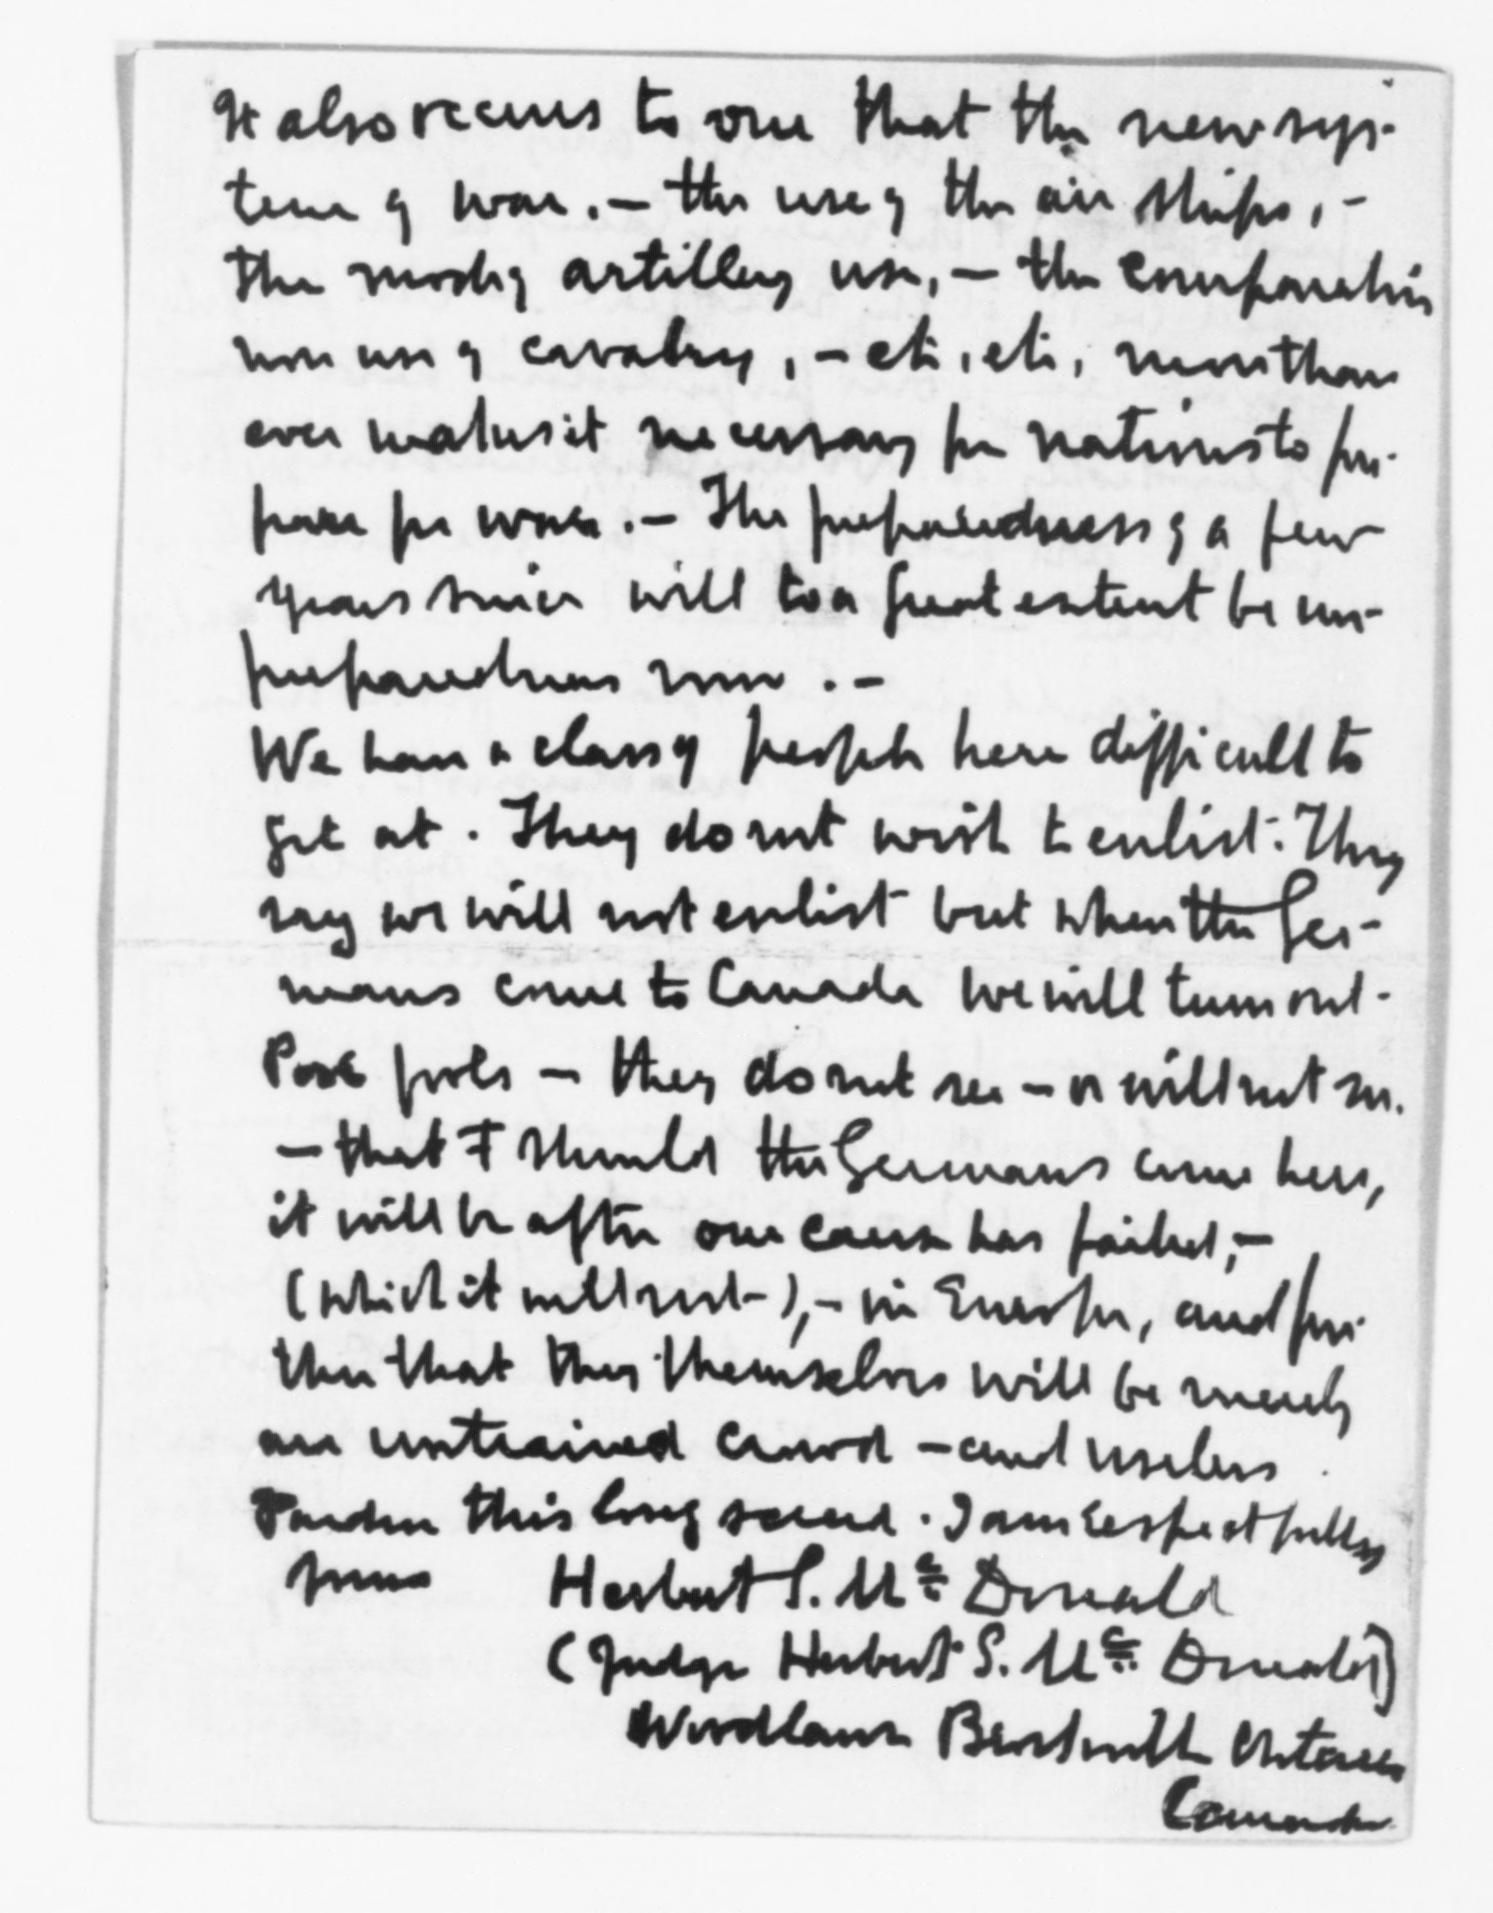 It also occurs to one that the new sys-
tem of war, - the use of the air ships, -
the mode of artillery use, - the comparative
non use of cavalry, - etc, etc, more than
ever makes it necessary for nations to pre-
pare for war. - The preparedness of a few
years since will to a great extent be un-
preparedness now. -
We have a class of people here difficult to
get at. They do not wish to enlist. They
say we will not enlist but when the Ger-
mans come to Canada we will turn out -
Poor fools - they do not see - or will not see.
- that should the Germans come here,
it will be after our cause has failed, -
(which it will not -), - in Europe, and fur
ther that they themselves will be merely
an untrained crowd - and useless.
Pardon this long screed. I am respectfully
yours Herbert S. Mc Donald
(Judge Herbert S. Mc Donald)
Woodlawn Brockville Ontario
Canada